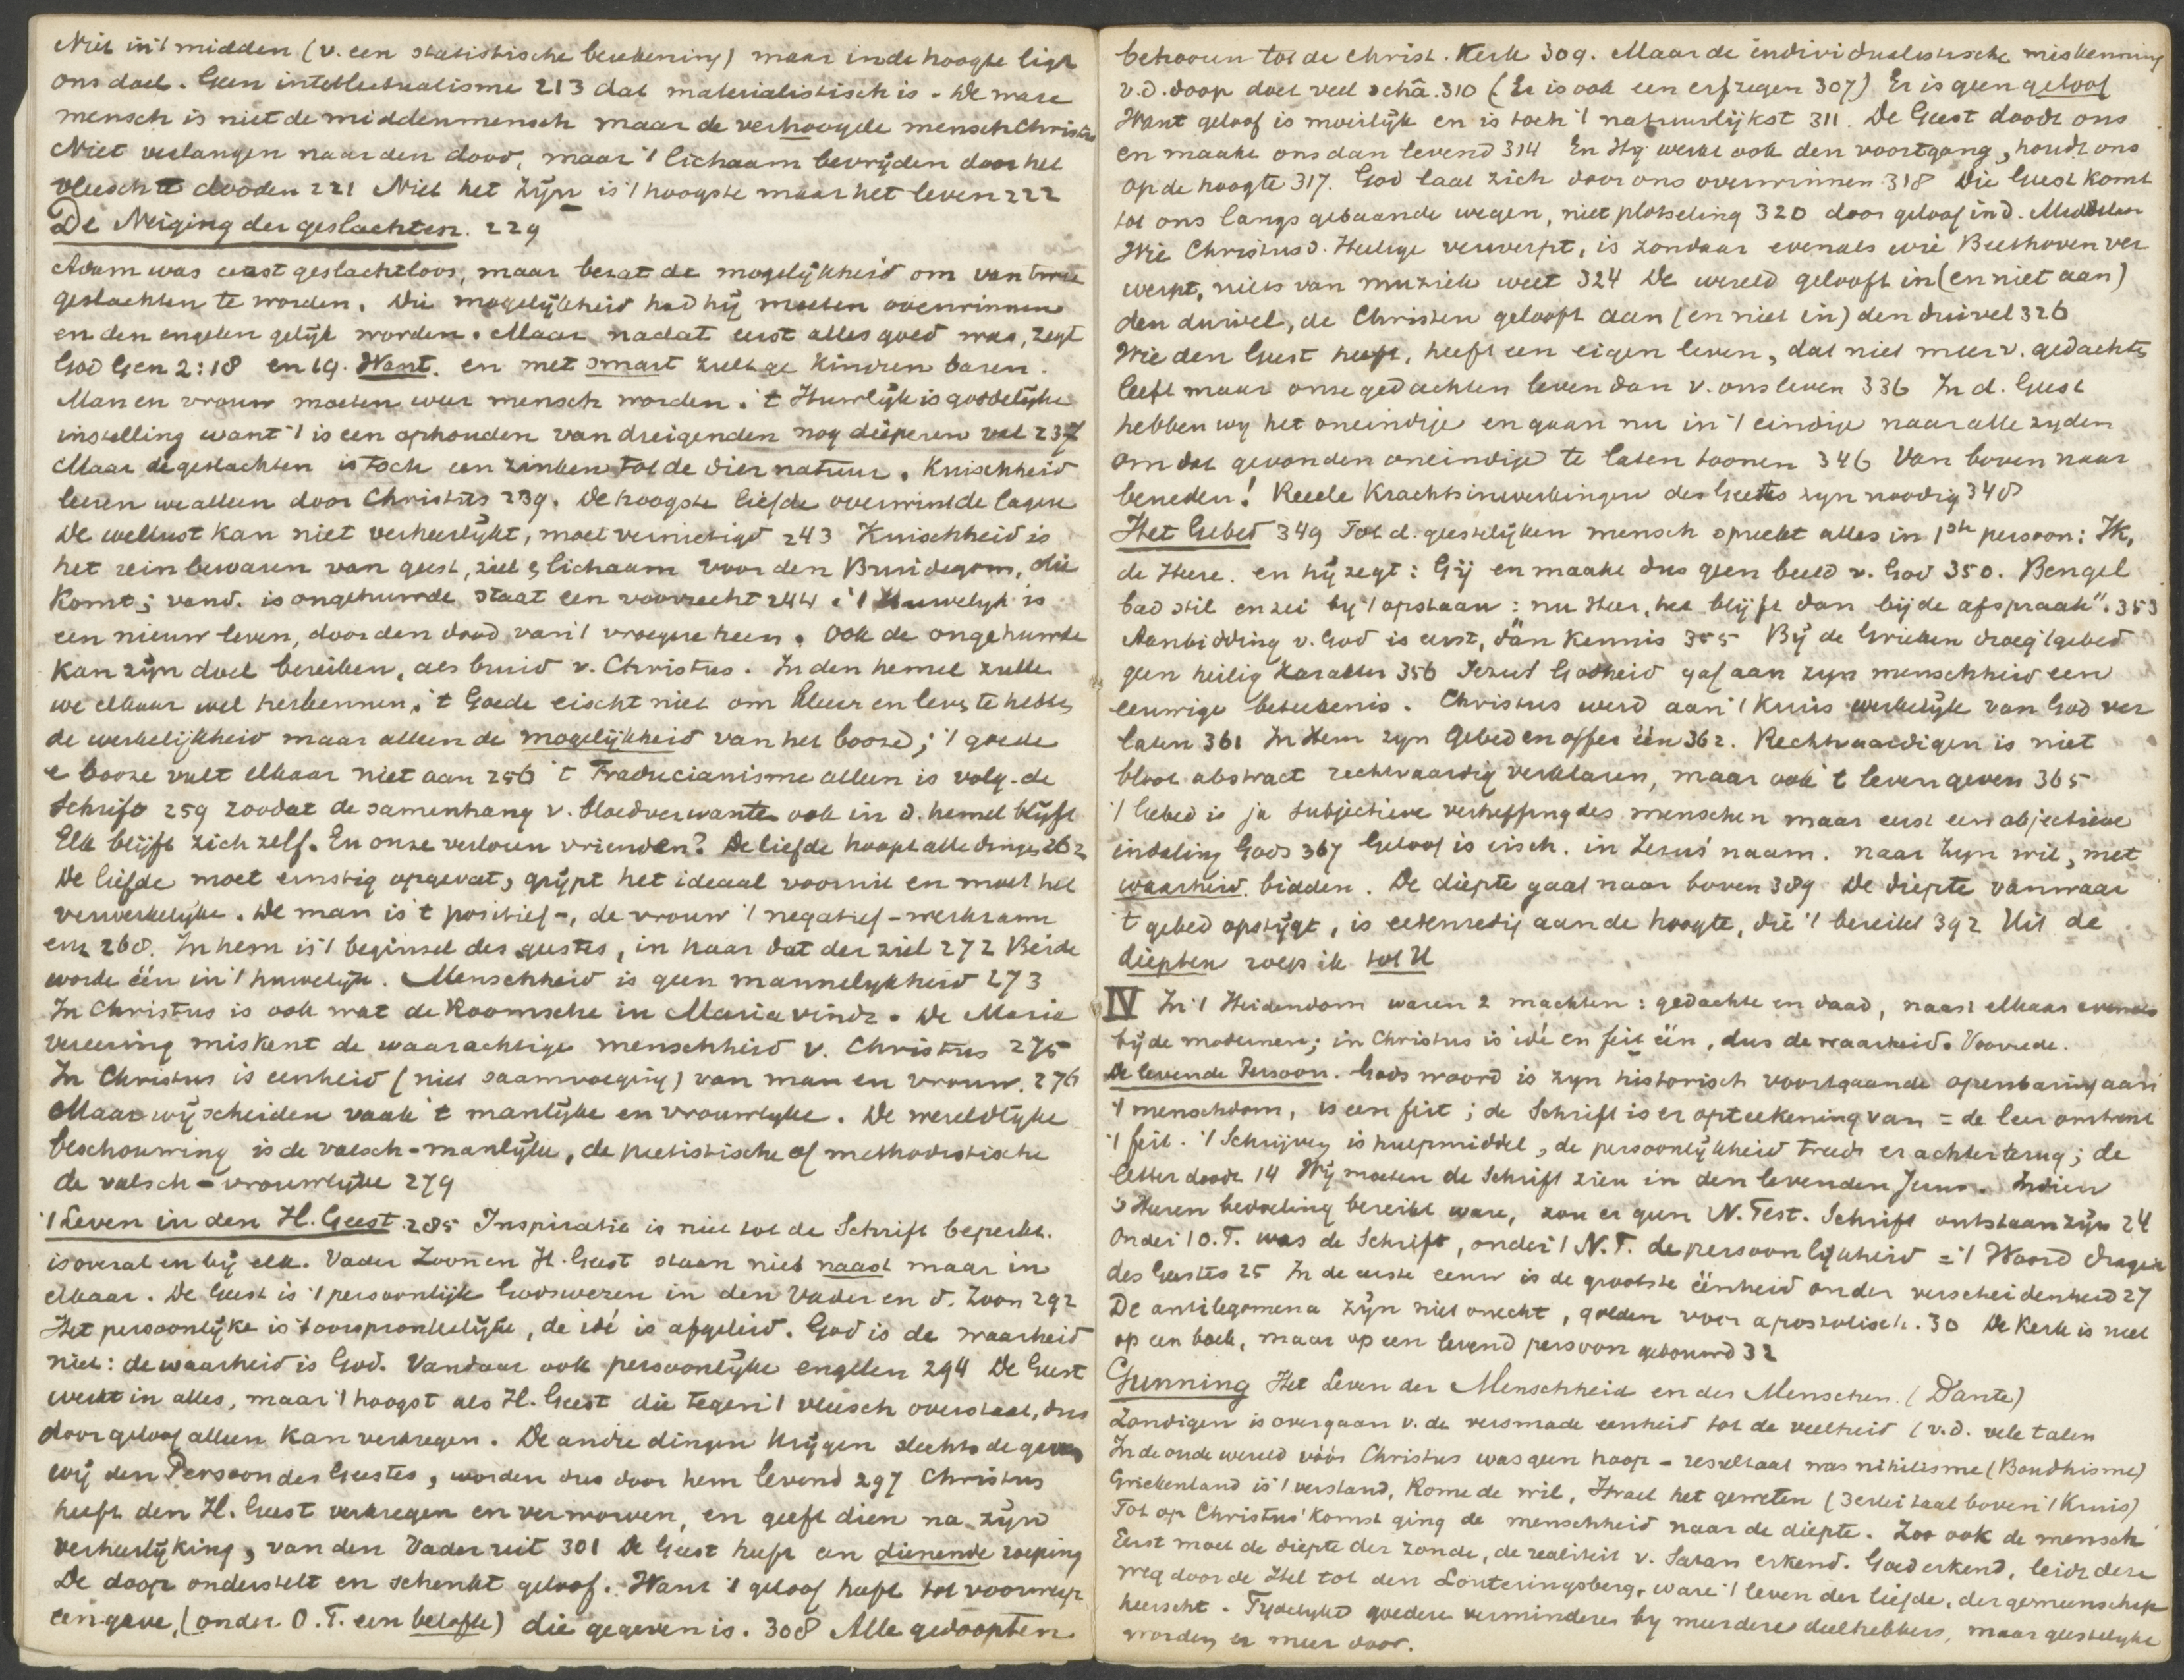 Niet in 't midden (v. een statistische berekening) maar in de hoogte ligt
ons doel. Geen intellectualisme 213 dat materialistisch is - De ware
mensch is niet de middenmensch maar de verhoogde mensch Christus
Niet verlangen naar den dood, maar 't lichaam bevrijden door het
vleesch te dooden 221 Niet het zijn is 't hoogste maar het leven 222
De Neiging der geslachten. 229
Adam was eerst geslachtloos, maar bezat de mogelijkheid om van twee
geslachten te worden. Die mogelijkheid had hij moeten overwinnen
en den engelen gelijk worden. Maar nadat eerst alles goed was, zegt
God Gen 2:18 en 19. Want. en met smart zult ge kindren baren.
Man en vrouw moeten weer mensch worden. 't Huwlijk is goddelijke
instelling want 't is een ophouden van dreigenden nog dieperen val 237
Maar de geslachten is toch een zinken tot de diernatuur. Kuischheid
leeren we alleen door Christus 239. De hoogste liefde overwint de lagere
De wellust kan niet verheerlijkt, moet vernietigd 243 Kuischheid is
het rein bewaren van geest, ziel & lichaam voor den Bruidegom, die
komt; vand. is ongehuwde staat een voorrecht 244. 't Huwelyk is
een nieuw leven, door den dood van 't vroegere heen. Ook de ongehuwde
kan zijn doel bereiken, als bruid v. Christus. In den hemel zullen
we elkaar wel herkennen. 't Goede eischt niet om kleur en leven te hebben
de werkelijkheid maar alleen de mogelijkheid van het booze; 't goede
& booze vult elkaar niet aan 256 't Traducianisme alleen is volg. de
Schrift 259 zoodat de samenhang v. bloedverwanten ook in d. hemel blijft
Elk blijft zich zelf. En onze verloren vrienden? De liefde hoopt alle dingen 262
De liefde moet ernstig opgevat, grijpt het ideaal vooruit en moet het
verwerkelijke. De man is 't positief-, de vrouw 't negatief-werkzame
enz 268. In hem is 't beginsel des geestes, in haar dat der ziel 272 Beide
worde één in 't huwelijk. Menschheid is geen mannelykheid 273
In Christus is ook wat de Roomsche in Maria vindt. De Maria
vereering miskent de waarachtige menschheid v. Christus 275
In Christus is eenheid (niet saamvoeging) van man en vrouw. 276
Maar wij scheiden vaak 't manlijke en vrouwlyke. De wereldlyke
beschouwing is de valsch-manlijke, de pietistische of methodistische
de valsch-vrouwlijke 279
't Leven in den H. Geest. 285 Inspiratie is niet tot de Schrift beperkt.
is overal en bij elk. Vader Zoon en H. Geest staan niet naast maar in
elkaar. De Geest is 't persoonlijk Godswezen in den Vader en d. Zoon 292
Het persoonlijke is 't oorspronkelijke, de idé is afgeleid. God is de waarheid
niet: de waarheid is God. Vandaar ook persoonlijke engelen 294 De Geest
werkt in alles, maar 't hoogst als H. Geest die tegen 't vleesch overstaat, dus
door geloof alleen kan verkregen. De andre dingen krijgen slechts de gaven
wij den Persoon des Geestes, worden dus door hem levend 297 Christus
heeft den H. Geest verkregen en verworven, en geeft dien na zijn
verheerlijking, van den Vader uit 301 De Geest heeft een dienende roeping
De doop onderstelt en schenkt geloof. Want 't geloof heeft tot voorwerp
een gave, (onder O.T. een belofte) die gegeven is. 308 Alle gedoopten
behooren tot de Christ. Kerk 309. Maar de individualistische miskenning
v.d. doop doet veel schâ. 310 (Er is ook een erfzegen 307) Er is geen geloof
Want geloof is moeilijk en is toch 't natuurlijkst 311. De Geest doodt ons
en maakt ons dan levend 314 En Hij werkt ook den voortgang, houdt ons
op de hoogte 317. God laat zich door ons overwinnen 318 Die Geest komt
tot ons langs gebaande wegen, niet plotseling 320 door geloof in d. Middelaar
Wie Christus d. Heilige verwerpt, is zondaar evenals wie Beethoven ver
werpt, niets van muziek weet 324 De wereld gelooft in (en niet aan)
den duivel, de Christen gelooft aan (en niet in) den duivel 326
Wie den Geest heeft, heeft een eigen leven, dat niet meer v. gedachten
leeft maar onze gedachten leven dan v. ons leven 336 In d. Geest
hebben wy het oneindige en gaan nu in 't eindige naar alle zyden
om dat gevonden oneindige te laten toonen 346 Van boven naar
beneden! Reeele krachtsinwerkingen des Geestes zyn noodig 348
Het Gebed 349 Tot d. geestelijken mensch spreekt alles in 1ste persoon: Ik,
de Heere. en hij zegt: Gij en maakt dus geen beeld v. God 350. Bengel
bad stil en zei by 't opstaan: nu Heer, het blijft dan bij de afspraak". 353
Aanbidding v. God is eerst, dàn kennis 355 Bij de Grieken droeg 't gebed
geen heilig karakter 356 Jezus' Godheid gaf aan zyn menschheid een
eeuwige beteekenis. Christus werd aan 't kruis werkelijk van God ver
laten 361 In Hem zyn gebed en offer één 362. Rechtvaardigen is niet
bloot abstract rechtvaardig verklaren, maar ook 't leven geven 365
't Gebed is ja subjectieve verheffing des menschen maar eerst een objectieve
indaling Gods 367 Geloof is eisch. in Jezus' naam. naar Zijn wil, met
waarheid. bidden. De diepte gaat naar boven 389 De diepte vanwaar
't gebed opstijgt, is evenredig aan de hoogte, die 't bereikt 392 Uit de
diepten roep ik tot U
IV In 't Heidendom waren 2 machten: gedachte en daad, naast elkaar evenals
bij de modernen; in Christus is idé en feit één, dus de waarheid. Voorrede.
De levende Persoon. Gods woord is zyn historisch voortgaande openbaring aan
't menschdom, is een feit; de Schrift is er opteekening van = de leer omtrent
't feit. 't Schrijven is hulpmiddel, de persoonlijkheid treedt er achter terug; de
letter doodt 14 Wij moeten de Schrift zien in den levenden Jezus. Indien
's Heeren bedoeling bereikt ware, zou er geen N. Test. Schrift ontstaan zijn 24
Onder 't O.T. was de Schrift, onder 't N.T. de persoonlijkheid = 't Woord drager
des Geestes 25 In de eerste eeuw is de grootste éénheid onder verscheidenheid 27
De antilegomena zijn niet onecht, golden voor apostolisch. 30 De Kerk is niet
op een boek, maar op een levend persoon gebouwd 32
Gunning Het Leven der Menschheid en des Menschen. (Dante)
Zondigen is overgaan v. de versmade eenheid tot de veelheid (v.d. vele talen
In de oude wereld vóór Christus was geen hoop - resultaat was nihilisme (Boudhisme)
Griekenland is 't verstand, Rome de wil, Israel het geweten (3erlei taal boven 't Kruis)
Tot op Christus' komst ging de menschheid naar de diepte. Zoo ook de mensch
Eerst moet de diepte der zonde, de realiteit v. Satan erkend. Goed erkend, leidt deze
weg door de Hel tot den Louteringsberg, waar 't leven der liefde, der gemeenschap
heerscht. Tydelyke goedere verminderen by meerdere deelhebbers, maar geestelyke
worden er meer door.